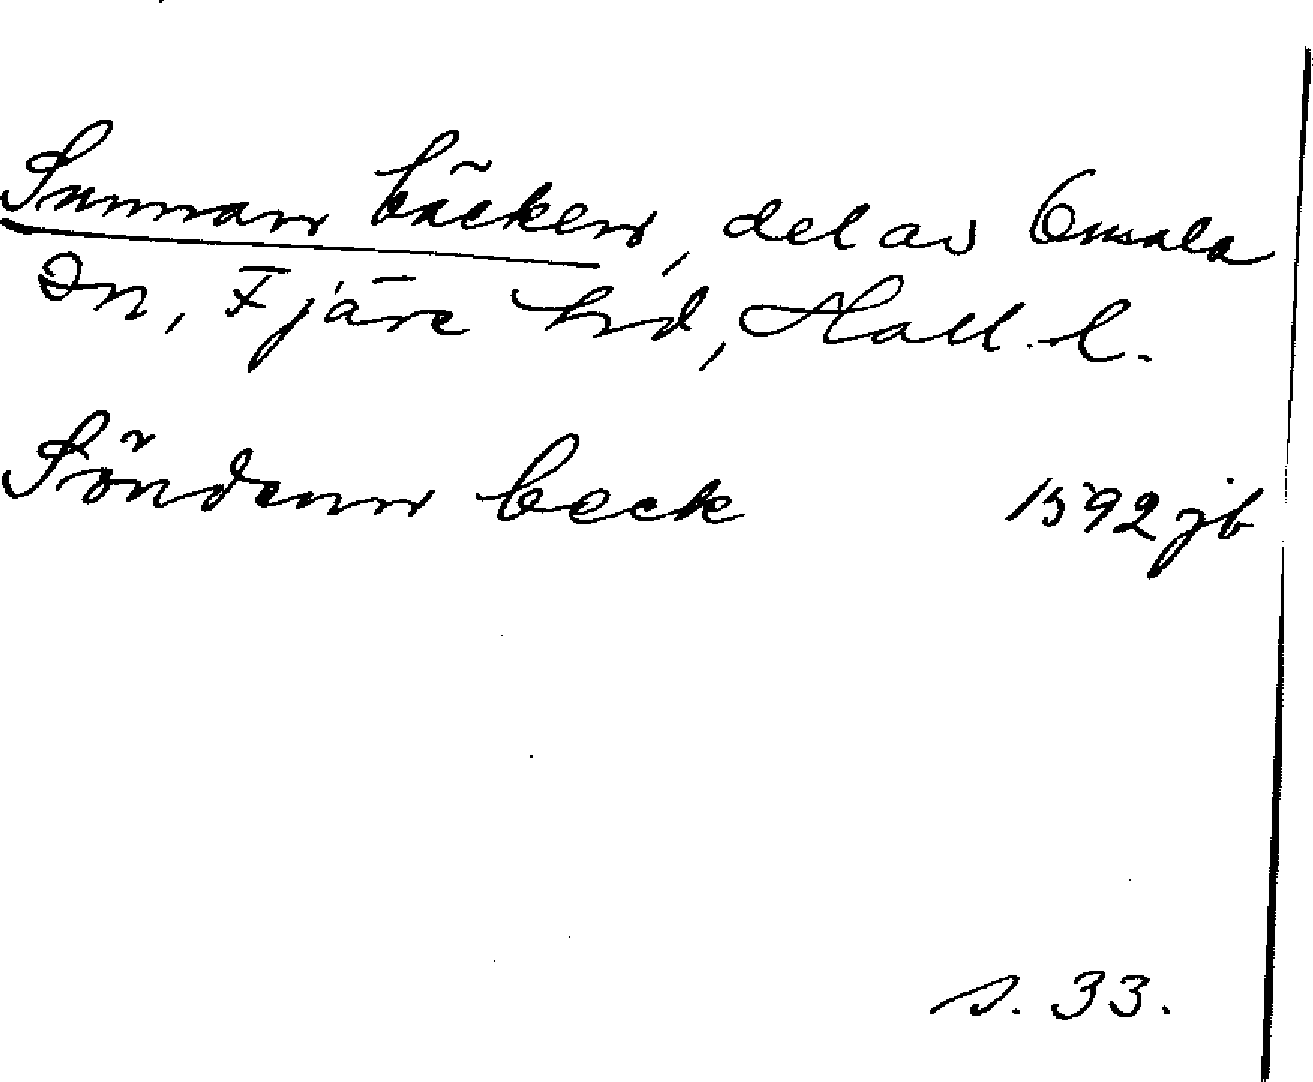 Sunnan bäcken, del av Onsala
sn, Fjäre hd, Hall. l.
Sönden beck 1592 jb
s. 33.